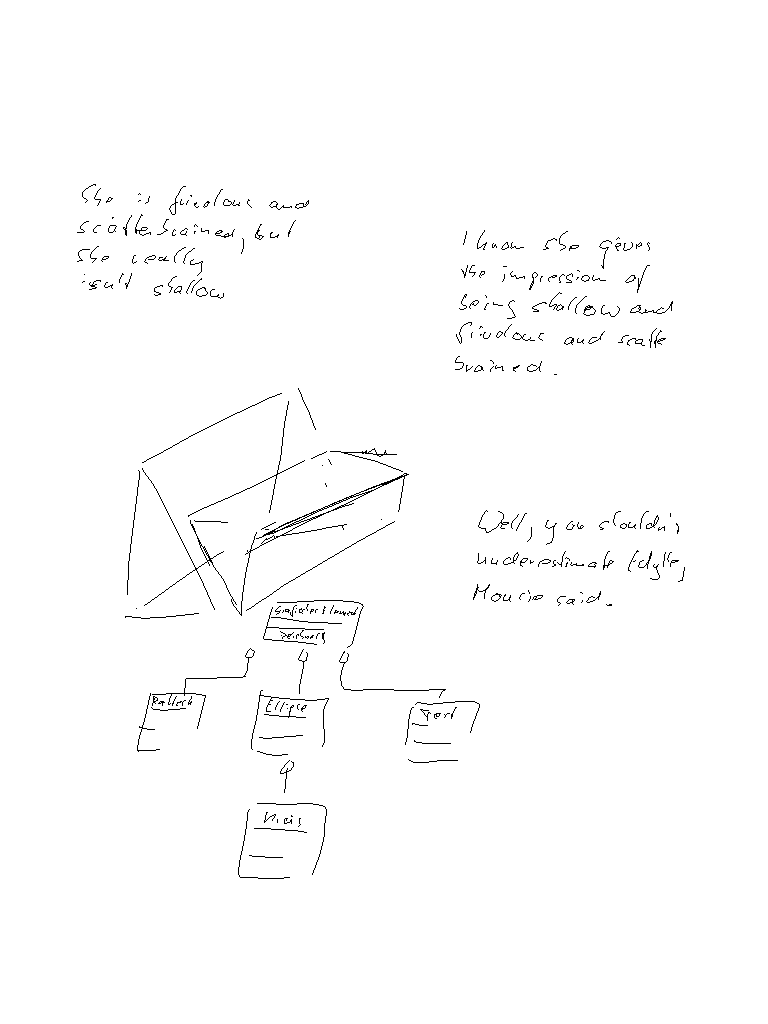 She is frivolous and
scatterbrained, but
she really
isn't shallow
I know she gives
the impression of
being shallow and
frivolous and scatte
brained.
Well, you shouldn't
underestimate Edyth,
Mourie said.
Grafisches Element
zeichnen
Rechteck
Ellipse
Text
Kreis